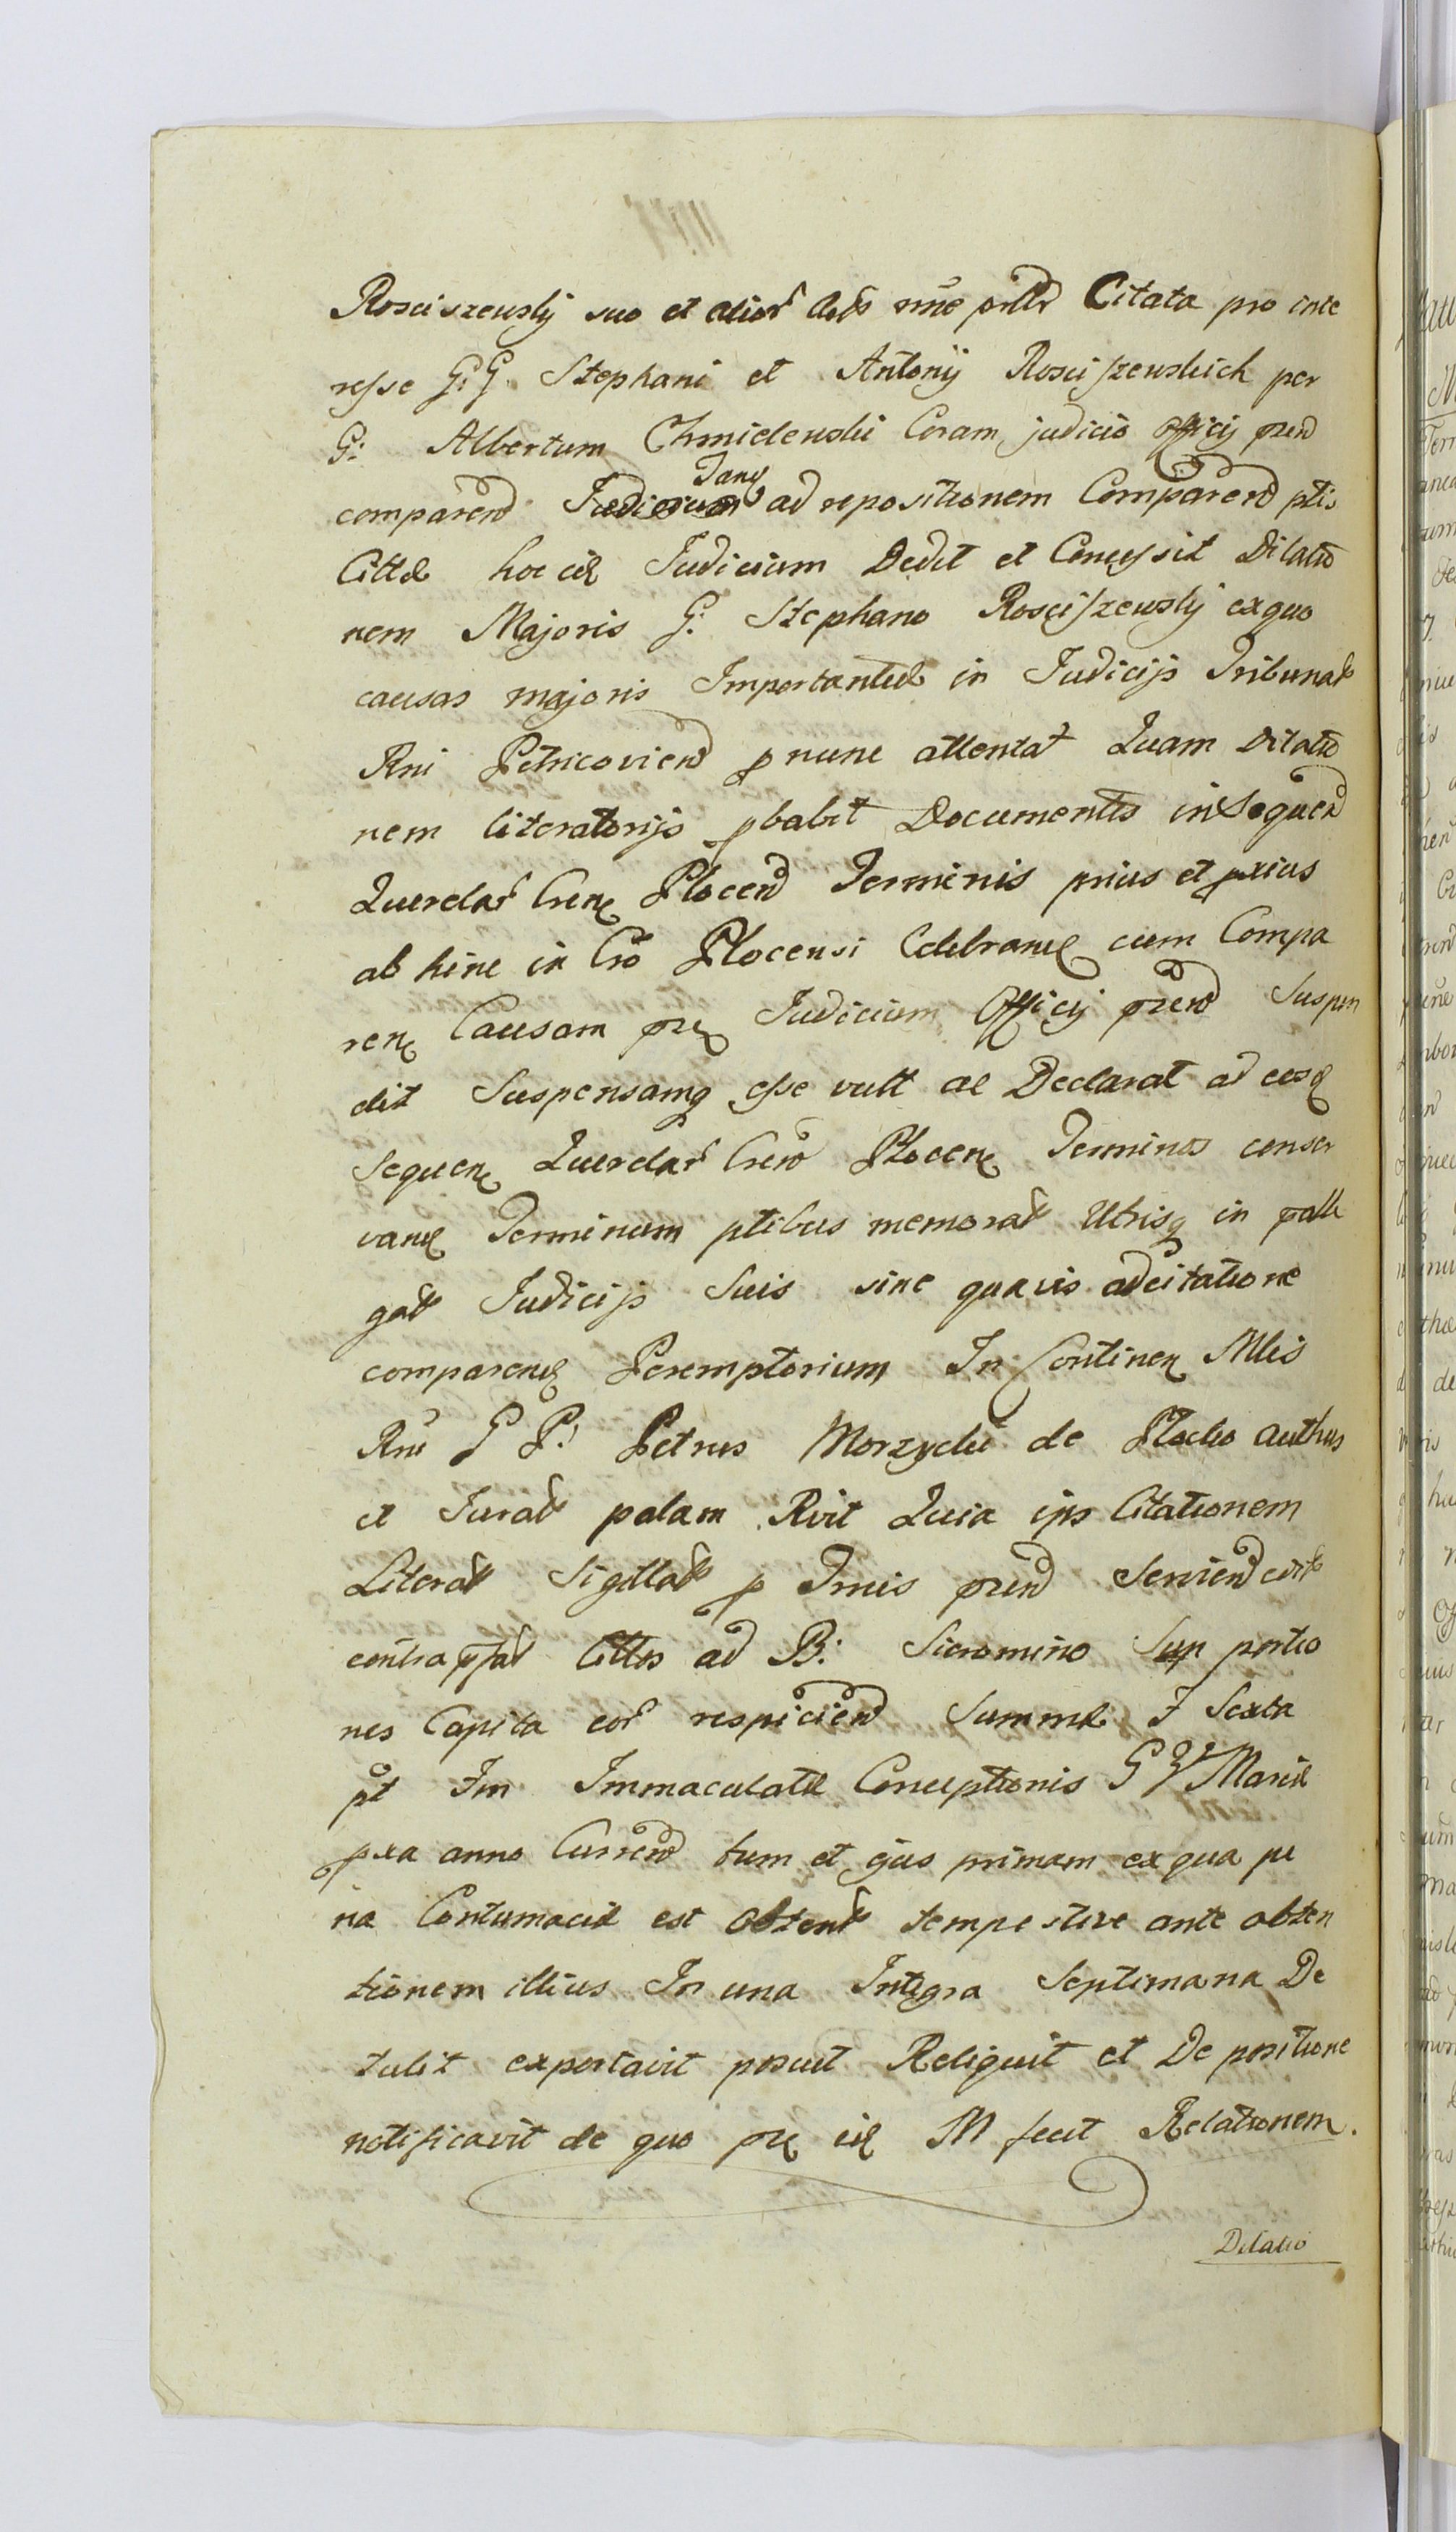 Rosciszewsky suo et alior nne Citata pro inte
resse G: G. Stephani et Antonij Rosciszewskich per
G: Albertum Chmielewski Coram judicio Officij pren
comparen Tanq ad repositionem Comparen ptis
Citta hoc id Judicium Dedit et Concessit Dilatio
nem Majoris G: Stephano Rosciszewsky ex quo
causas majoris Importantia in Judicijs Tribunal
Rni Petricovien p nunc attentat Quam Dilatio
nem literatorijs pbabit Documentis in Sequen
Querelar Cren Plocen Terminis prius et pxius
ab hinc in Cro Plocensi Celebran cum Compa
ren Causam prn Judicium Officij pren Suspen
dit Suspensamq esse vult ac Declarat ad eosq
sequen Querelar Cren Plocen Terminos conser
van Terminum ptibus memorat Utrisq in pall
gat Judicijs Suis sine quavis adcitatione
comparen Peremptorium In Continen Mtis
Rni G P: Petrus Morzycki de Plocko authus
et Jurat palam Rvit Quia ips Citationem
Literat Sigillat p Tmis pren Servien edit
contra pfat Cittos ad B: Sieromino Sup portio
nes Capita eor respicien Summa F Sexta
pt Fm Immaculata Conceptionis G V Maria
pxa anno Curren tum et ejus primam ex qua pu
na Contumacia est obtent tempestive ante obten
tionem illius In una Integra Septimana De
tulit exportavit posuit Reliquit et De positione
notificavit de quo prn id M fecit Relationem.
Dilatio